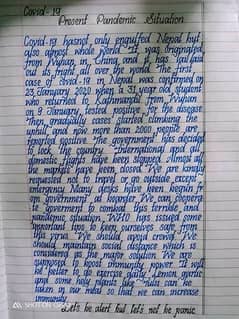 Covid-19
Present Pandemic Situation
Covid-19 hasnot only engulfed Nepal but
also almost whole world. It was originated
from Wuhan in China and it has laid
out its fright all over the world. The first
case of covid-19 in Nepal was confirmed on
23 January 2020 when a 31 year old student
who returned to Kathmandu from Wuhan
on 9 January, tested positive for the disease
Then gradually cases started climbing the
uphill and now more than 2000 people are
reported positive. The government has decided
to lock the country. International and
domestic flights have been stopped. Almost all
the markets have been closed. We are kindly
requested not to travel or go outside except
emergency. Many desks have been begin from
government at boarder. We can cooperate
government to combat this terrible and
pandemic situation. WHO has issued some
important tips to keep ourselves safe from
this virus. We should avoid crowd. We
should maintain social distance which is
considered as the major solution. We are
supposed to boost immunity power. It will
be better to do exercise daily. Lemon, garlic
and some help plants like can be
taken in our meal so that we can increase
immunity.
Let's be alert but let's not be panic.
SHOT ON